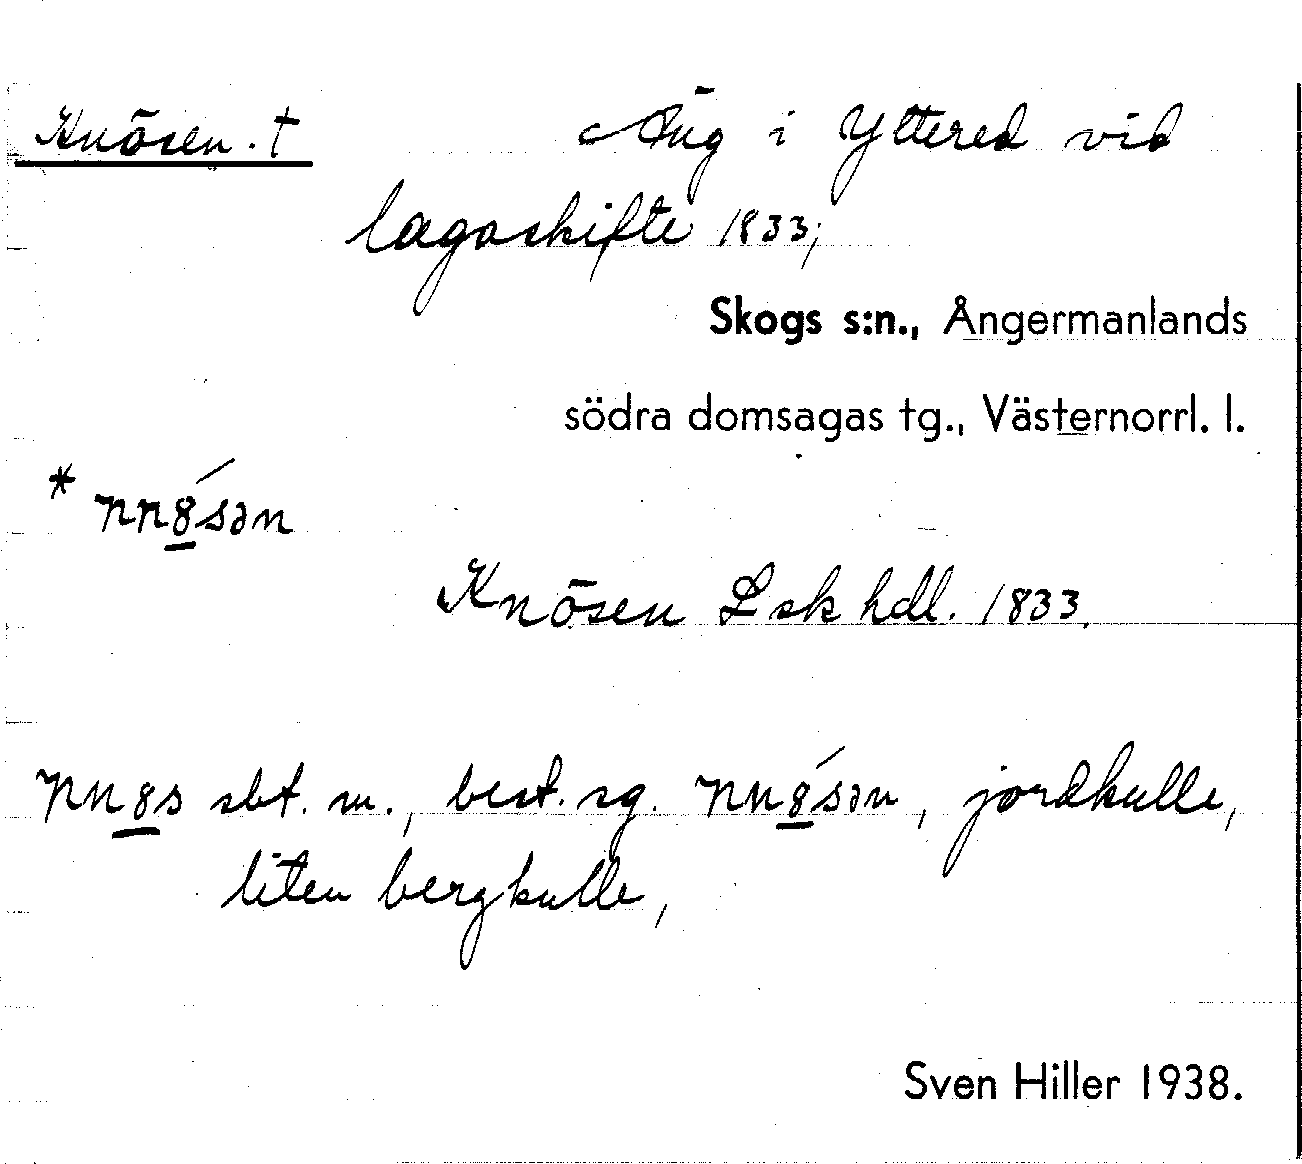 Knösen. †
Äng i Yttered vid
lagaskifte 1833;
Skogs s:n., Ångermanlands
södra domsagas tg., Västernorrl. l.
* nn8̲́sən
Knösen Lsk hdl. 1833.
nn8̲s sbt. m., best. sg. nn8̲́sən, jordkulle,
liten bergkulle,
Sven Hiller 1938.